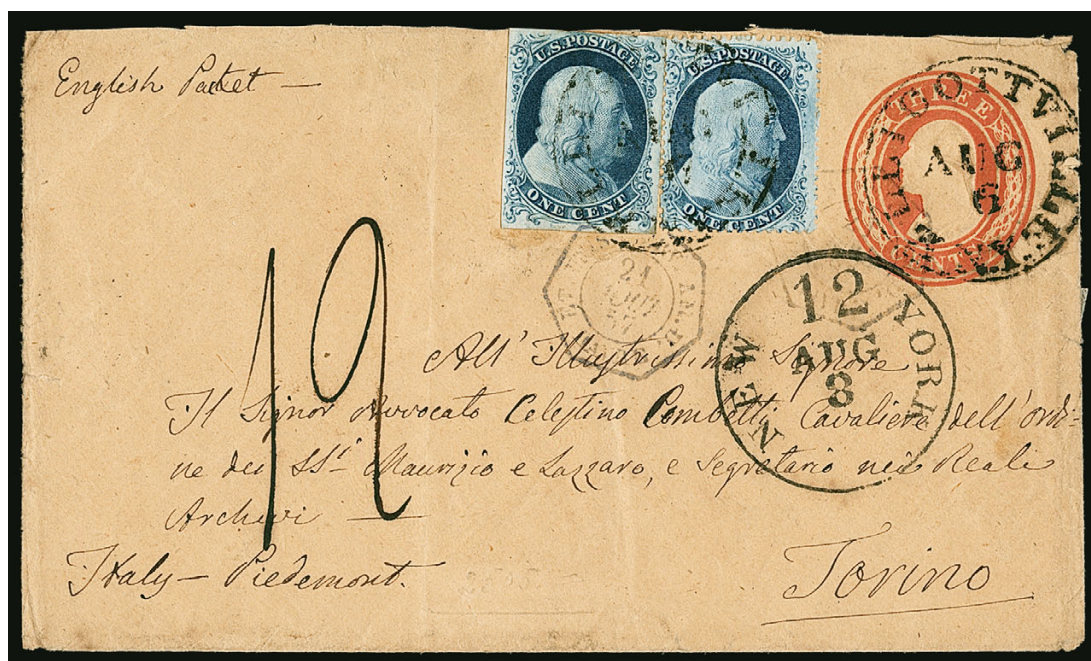 English Packet —
U.S. POSTAGE
ONE CENT
U.S. POSTAGE
ONE CENT
THREE
CENTS
ELLICOTTVILLE N.Y.
AUG
6
21
AOUT
57
NEW YORK
12
AUG
8
12
All' Illustrissimo Signore
Il Signor Avvocato Celestino Combetti Cavaliere dell'ordi-
ne dei SSti Maurizio e Lazzaro, e Segretario nei Reali
Archivi —
Italy — Piedemont.
Torino